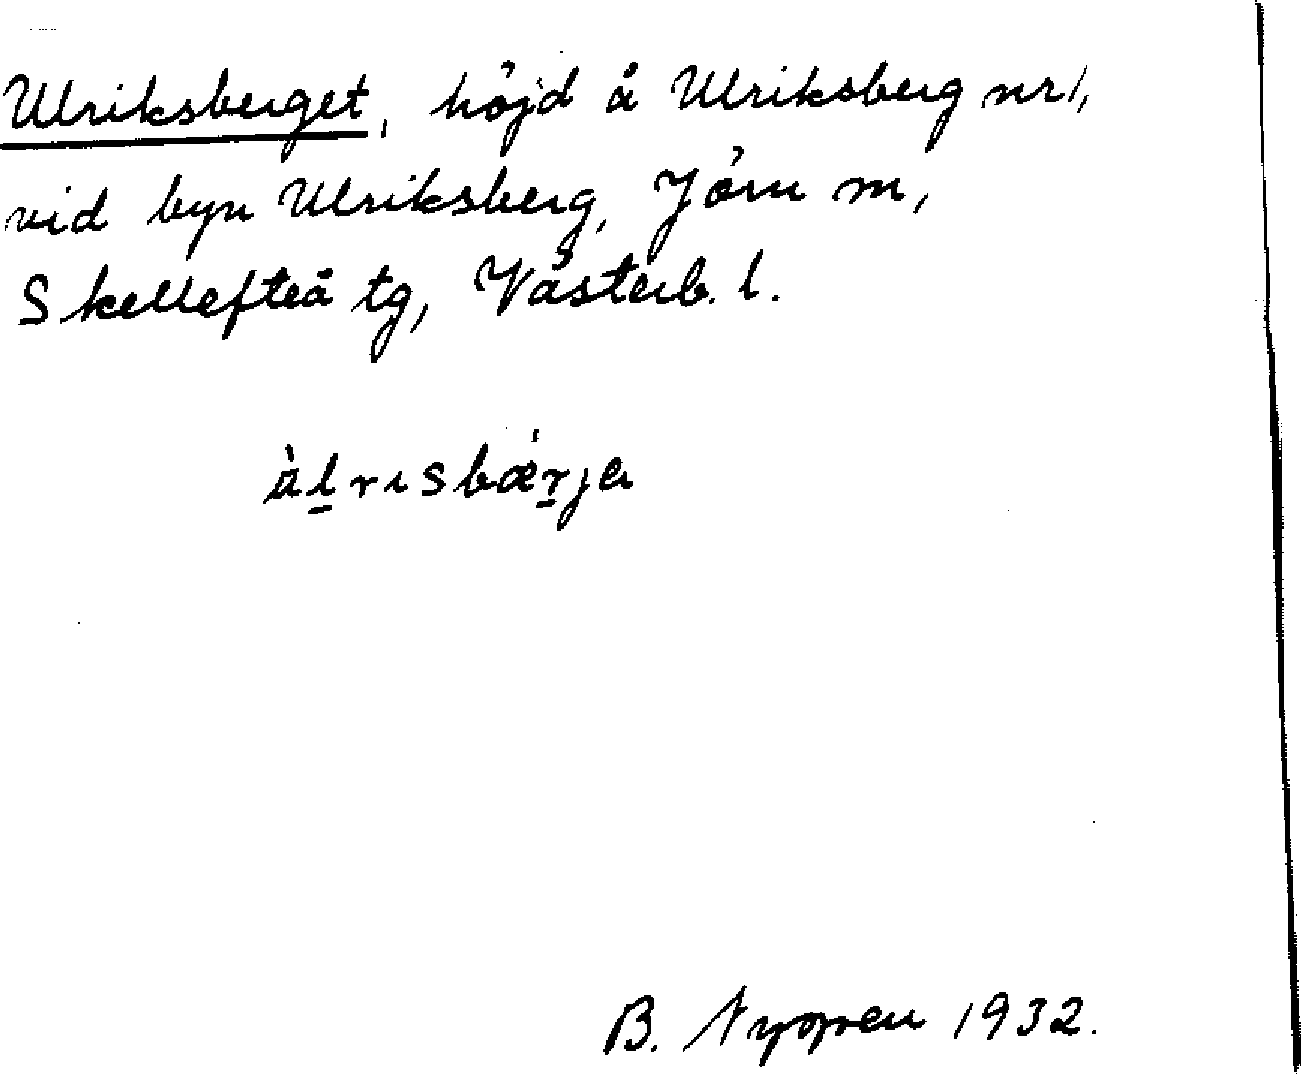 Ulriksberget, höjd å Ulriksberg nr 1,
vid byn Ulriksberg, Jörn m,
Skellefteå tg, Västerb. l.
àl̠rɩsbæ̀r̠ja
B. 1932.